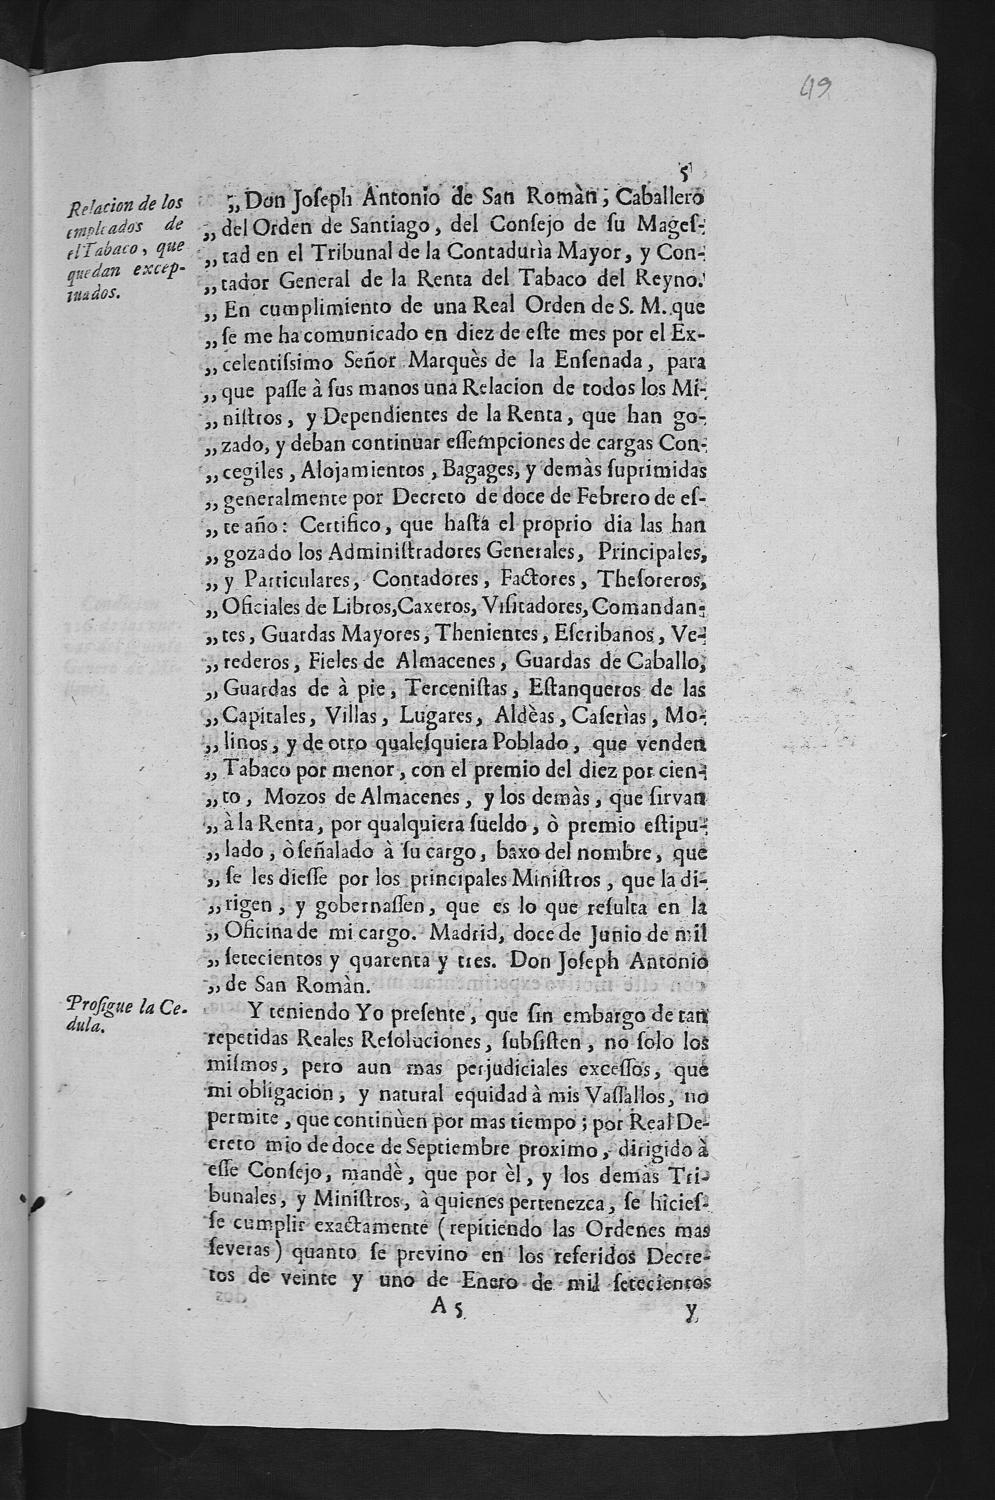 49
5
Relacion de los
empleados de
el Tabaco, que
quedan excep-
tuados.
,, Don Joseph Antonio de San Romàn, Caballero
,, del Orden de Santiago, del Consejo de su Mages-
,, tad en el Tribunal de la Contadurìa Mayor, y Con-
,, tador General de la Renta del Tabaco del Reyno.
,, En cumplimiento de una Real Orden de S. M. que
,, se me ha comunicado en diez de este mes por el Ex-
,, celentissimo Señor Marquès de la Ensenada, para
,, que passe à sus manos una Relacion de todos los Mi-
,, nistros, y Dependientes de la Renta, que han go-
,, zado, y deban continuar essempciones de cargas Con-
,, cegiles, Alojamientos, Bagages, y demàs suprimidas
,, generalmente por Decreto de doce de Febrero de es-
,, te año: Certifico, que hasta el proprio dia las han
,, gozado los Administradores Generales, Principales,
,, y Particulares, Contadores, Factores, Thesoreros,
,, Oficiales de Libros, Caxeros, Visitadores, Comandan-
,, tes, Guardas Mayores, Thenientes, Escribanos, Ve-
,, rederos, Fieles de Almacenes, Guardas de Caballo,
,, Guardas de à pie, Tercenistas, Estanqueros de las
,, Capitales, Villas, Lugares, Aldèas, Caserìas, Mo-
,, linos, y de otro qualesquiera Poblado, que venden
,, Tabaco por menor, con el premio del diez por cien-
,, to, Mozos de Almacenes, y los demàs, que sirvan
,, à la Renta, por qualquiera sueldo, ò premio estipu-
,, lado, ò señalado à su cargo, baxo del nombre, que
,, se les diesse por los principales Ministros, que la di-
,, rigen, y gobernassen, que es lo que resulta en la
,, Oficina de mi cargo. Madrid, doce de Junio de mil
,, setecientos y quarenta y tres. Don Joseph Antonio
,, de San Romàn.
Prosigue la Ce-
dula.
Y teniendo Yo presente, que sin embargo de tan
repetidas Reales Resoluciones, subsisten, no solo los
mismos, pero aun mas perjudiciales excessos, que
mi obligacion, y natural equidad à mis Vassallos, no
permite, que continùen por mas tiempo; por Real De-
creto mio de doce de Septiembre proximo, dirigido à
esse Consejo, mandè, que por èl, y los demàs Tri-
bunales, y Ministros, à quienes pertenezca, se hicies-
se cumplir exactamente (repitiendo las Ordenes mas
severas) quanto se previno en los referidos Decre-
tos de veinte y uno de Enero de mil setecientos
A 5 y